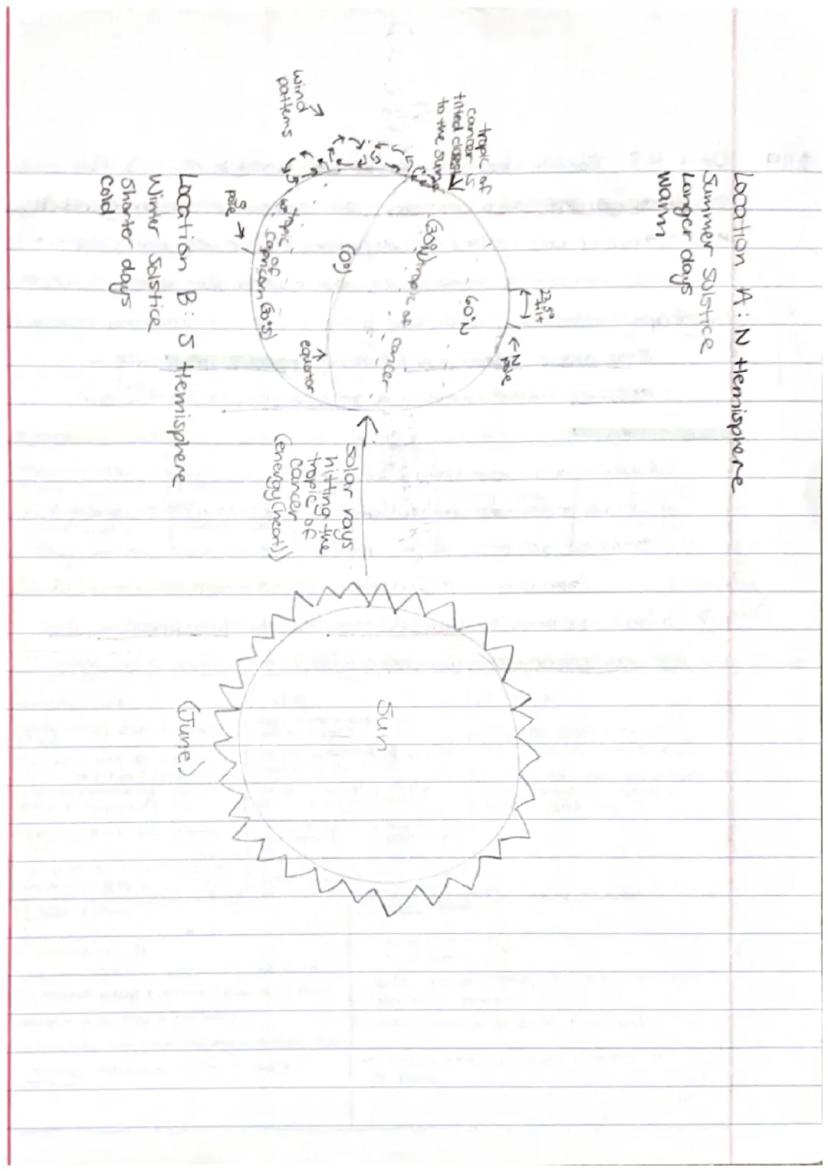 Location A: N Hemisphere
Summer Solstice
Longer days
Warm
tropic of
cancer is
tilted closer
to the sun
23.5°
tilt
N
pole
60°N
(30°N) tropic of cancer
(0°)
equator
tropic of
Capricorn (30°S)
S
pole
wind
patterns
solar rays
hitting the
tropic of
cancer
(energy(heat))
Sun
(June)
Location B: S Hemisphere
Winter Solstice
Shorter days
Cold